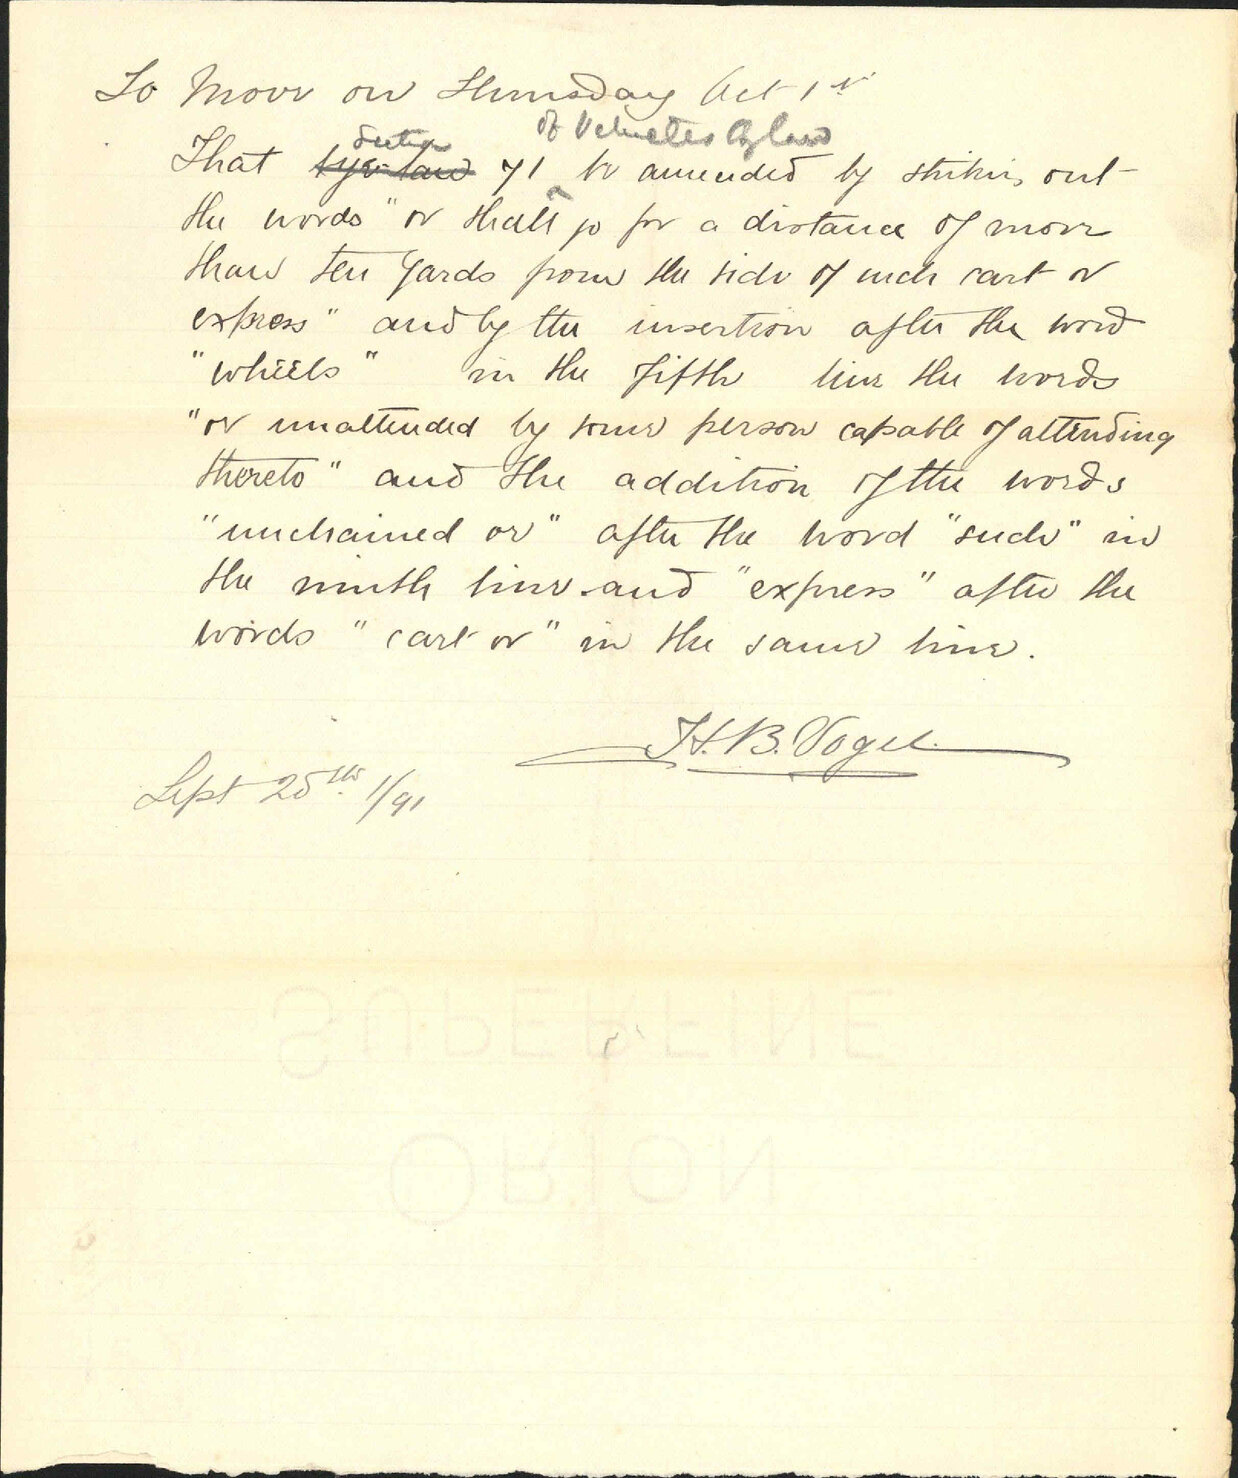 To Move on Thursday Oct 1st
Section of Vehicles Bylaw
That bye-law 71 be amended by striking out
the words "or shall go for a distance of more
than ten yards from the side of such cart or
express" and by the insertion after the word
"wheels" in the fifth line the words
"or unattended by some person capable of attending
thereto" and the addition of the words
"unchained or" after the word "such" in
the ninth line and "express" after the
words "cart or" in the same line.
H. B. Vogel
Sept 25th 1/91
SUPERFINE
ORION